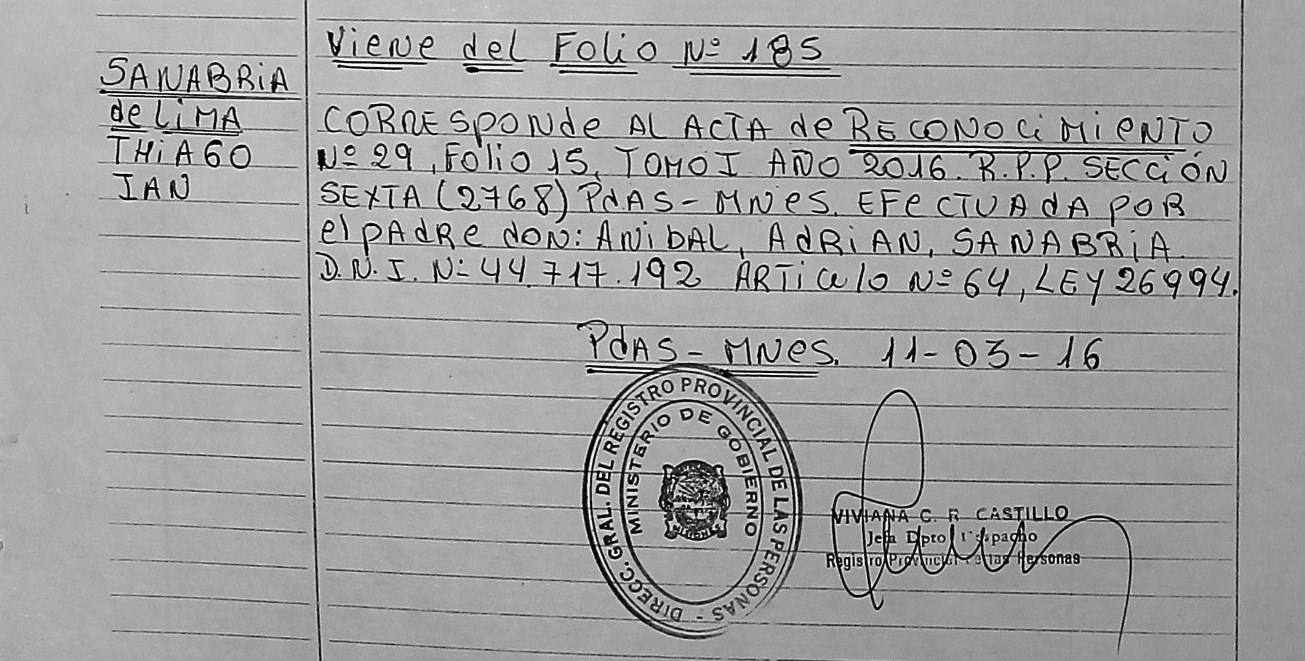 Viene del Folio Nº 185
SANABRIA
de LiMA
THiAGO
IAN
CORRESPONde AL ACTA de RECONOCiMiENTO
Nº 29, FOLiO 15, TOMO I AÑO 2016. R.P.P. SECCiÓN
SEXTA (2768) PdAS-MNES. EFECTUAdA POR
el pAdRe dON: ANibAL, AdRiAN, SANABRiA.
D.N.I. Nº 44.717.192 ARTiCulO Nº 64, LEY 26994.
PdAS-MNES. 11-03-16
DIRECC. GRAL. DEL REGISTRO PROVINCIAL DE LAS PERSONAS -
MINISTERIO DE GOBIERNO
VIVIANA C. R. CASTILLO
Jefa Dpto Despacho
Registro Provincial de las Personas